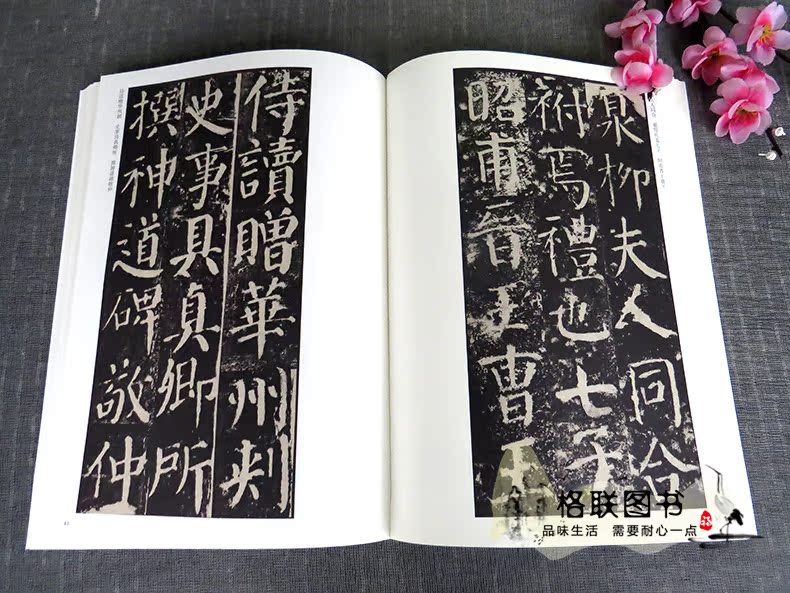 原柳夫人同合
祔焉禮也七子
昭甫晉王曹王
侍讀贈華州刺
史事具真卿所
撰神道碑敬仲
格联图书
品味生活 需要耐心一点